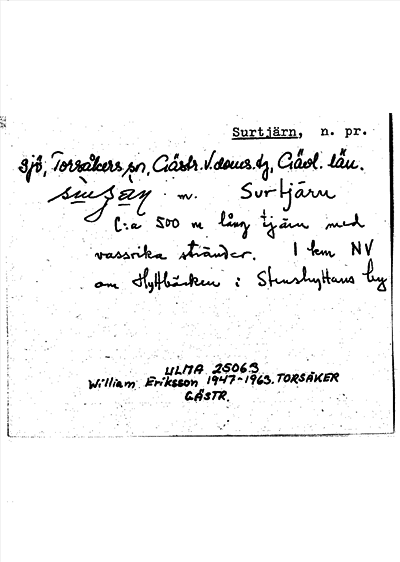 Surtjärn, n. pr.
sjö, Torsåkers sn, Gästr. V. doms. tg, Gävl. län.
m. Surtjärn
C:a 500 m lång tjärn med
vassrika stränder. 1 km NV
om Hyttbäcken i Stenshyttans by
ULMA 25063
William Eriksson 1947-1963. TORSÅKER
GÄSTR.